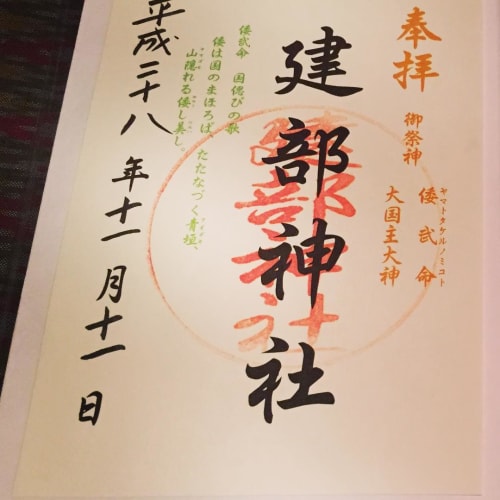 奉拝
御祭神
倭武命
ヤマトタケルノミコト
大国主大神
建部神社
倭武命 国偲びの歌
倭は国のまほろば、たたなづく青垣、
山隠れる倭し美し。
平成二十八年十一月十一日